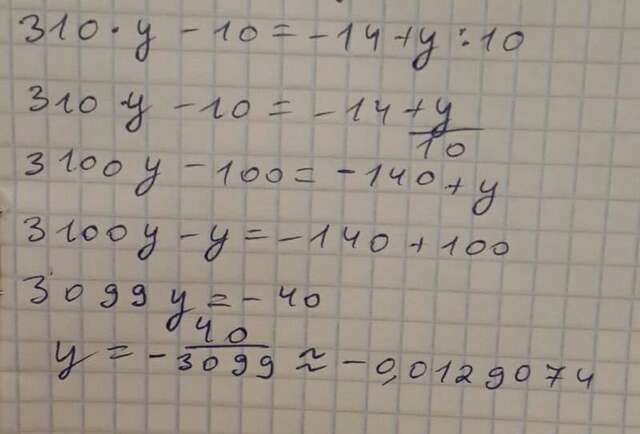 310·y - 10 = -14 + y : 10
310 y - 10 = -14 + y/10
3100 y - 100 = -140 + y
3100 y - y = -140 + 100
3099 y = -40
y = - 40/3099 ≈ -0,0129074